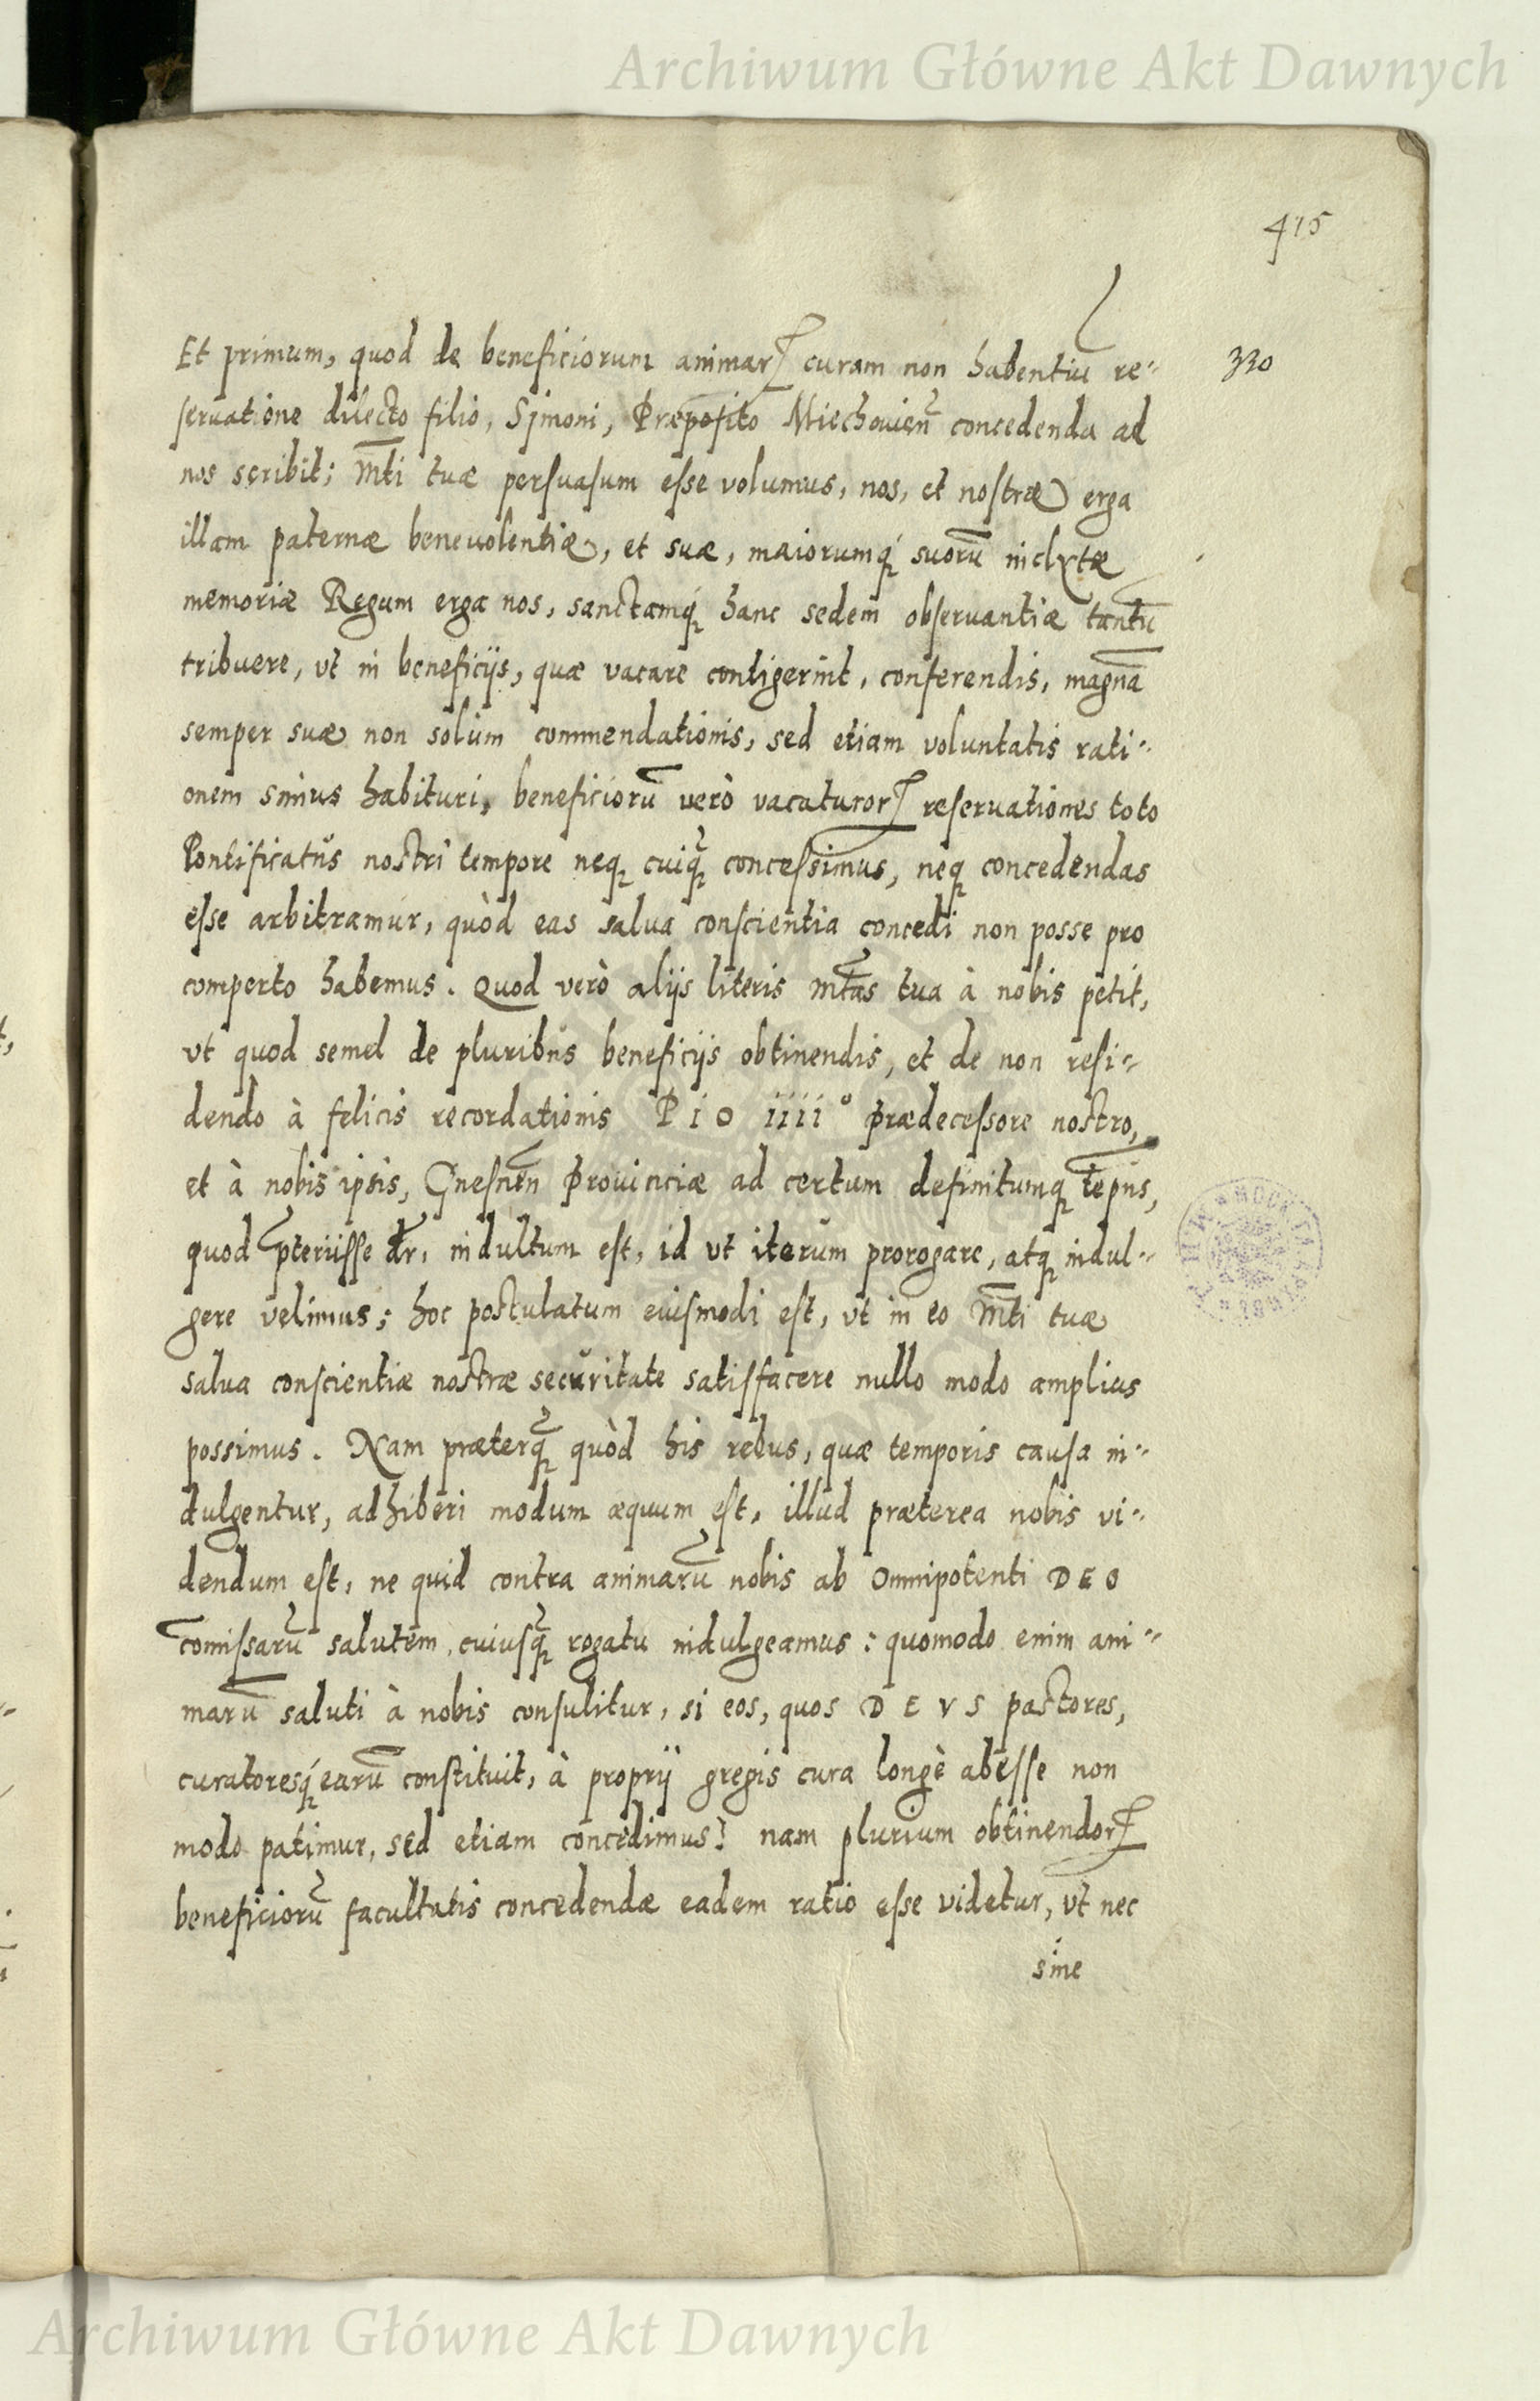 Archiwum Główne Akt Dawnych
415
Et primum, quod de beneficiorum animarꝝ curam non habentiū re-
330
seruatione dilecto filio, Sijmoni, Præposito Miechouien̄ concedenda ad
nos scribit; M̄ti tuæ persuasum esse volumus, nos, et nostræ erga
illam paternæ beneuolentiæ, et suæ, maiorumq́ꝫ suorū inclytæ
memoriæ Regum erga nos, sanctamq́ꝫ hanc sedem obseruantiæ tantū
tribuere, vt in beneficijs, quæ vacare contigerint, conferendis, magnā
semper suæ non solùm commendationis, sed etiam voluntatis rati-
onem simus habituri, beneficiorū verò vacaturorꝝ reseruationes toto
Pontificatus nostri tempore neqꝫ cuiq̄ꝫ concessimus, neqꝫ concedendas
esse arbitramur, quòd eas salua conscientia concedi non posse pro
comperto habemus. Quod verò alijs literis M̄tas tua à nobis petit,
vt quod semel de pluribus beneficijs obtinendis, et de non resi-
dendo à felicis recordationis PIO iiii° Prædecessore nostro,
et à nobis ipsis, Gnesnen̄ Prouinciæ ad certum definitumqꝫ tēpus,
quod p̄teriisse dr̄, indultum est, id vt iterùm prorogare, atqꝫ indul-
gere velimus; hoc postulatum eiusmodi est, vt in eo M̄ti tuæ
salua conscientiæ nostræ securitate satisfacere nullo modo amplius
possimus. Nam præterq̄ꝫ quòd his rebus, quæ temporis causa in-
dulgentur, adhiberi modum æquum est, illud præterea nobis vi-
dendum est, ne quid contra animarū nobis ab Omnipotenti DEO
com̄issarū salutem, cuiusq̄ꝫ rogatu indulgeamus: quomodo enim ani-
marū saluti à nobis consulitur, si eos, quos DEVS pastores,
curatoresq́ꝫ earū constituit, à proprij gregis cura longè abesse non
modo patimur, sed etiam concedimus? nam plurium obtinendorꝝ
beneficiorū facultatis concedendæ eadem ratio esse videtur, vt nec
sine
Archiwum Główne Akt Dawnych